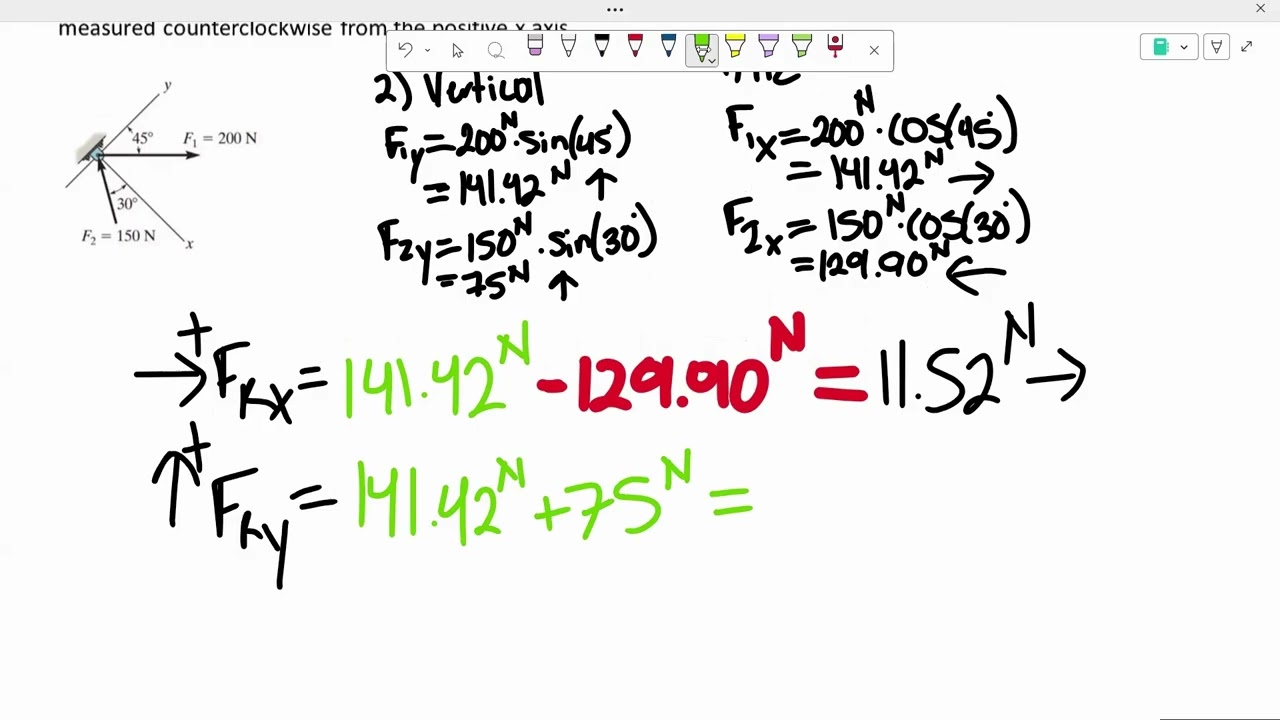 measured counterclockwise from the positive x axis
y
45°
F₁ = 200 N
30°
F₂ = 150 N
x
2) Vertical
F₁y = 200ᴺ · sin(45°)
= 141.42ᴺ ↑
F₂y = 150ᴺ · sin(30°)
= 75ᴺ ↑
F₁x = 200ᴺ · cos(45°)
= 141.42ᴺ →
F₂x = 150ᴺ · cos(30°)
= 129.90ᴺ ←
→+ FRx = 141.42ᴺ - 129.90ᴺ = 11.52ᴺ →
↑+ FRy = 141.42ᴺ + 75ᴺ =